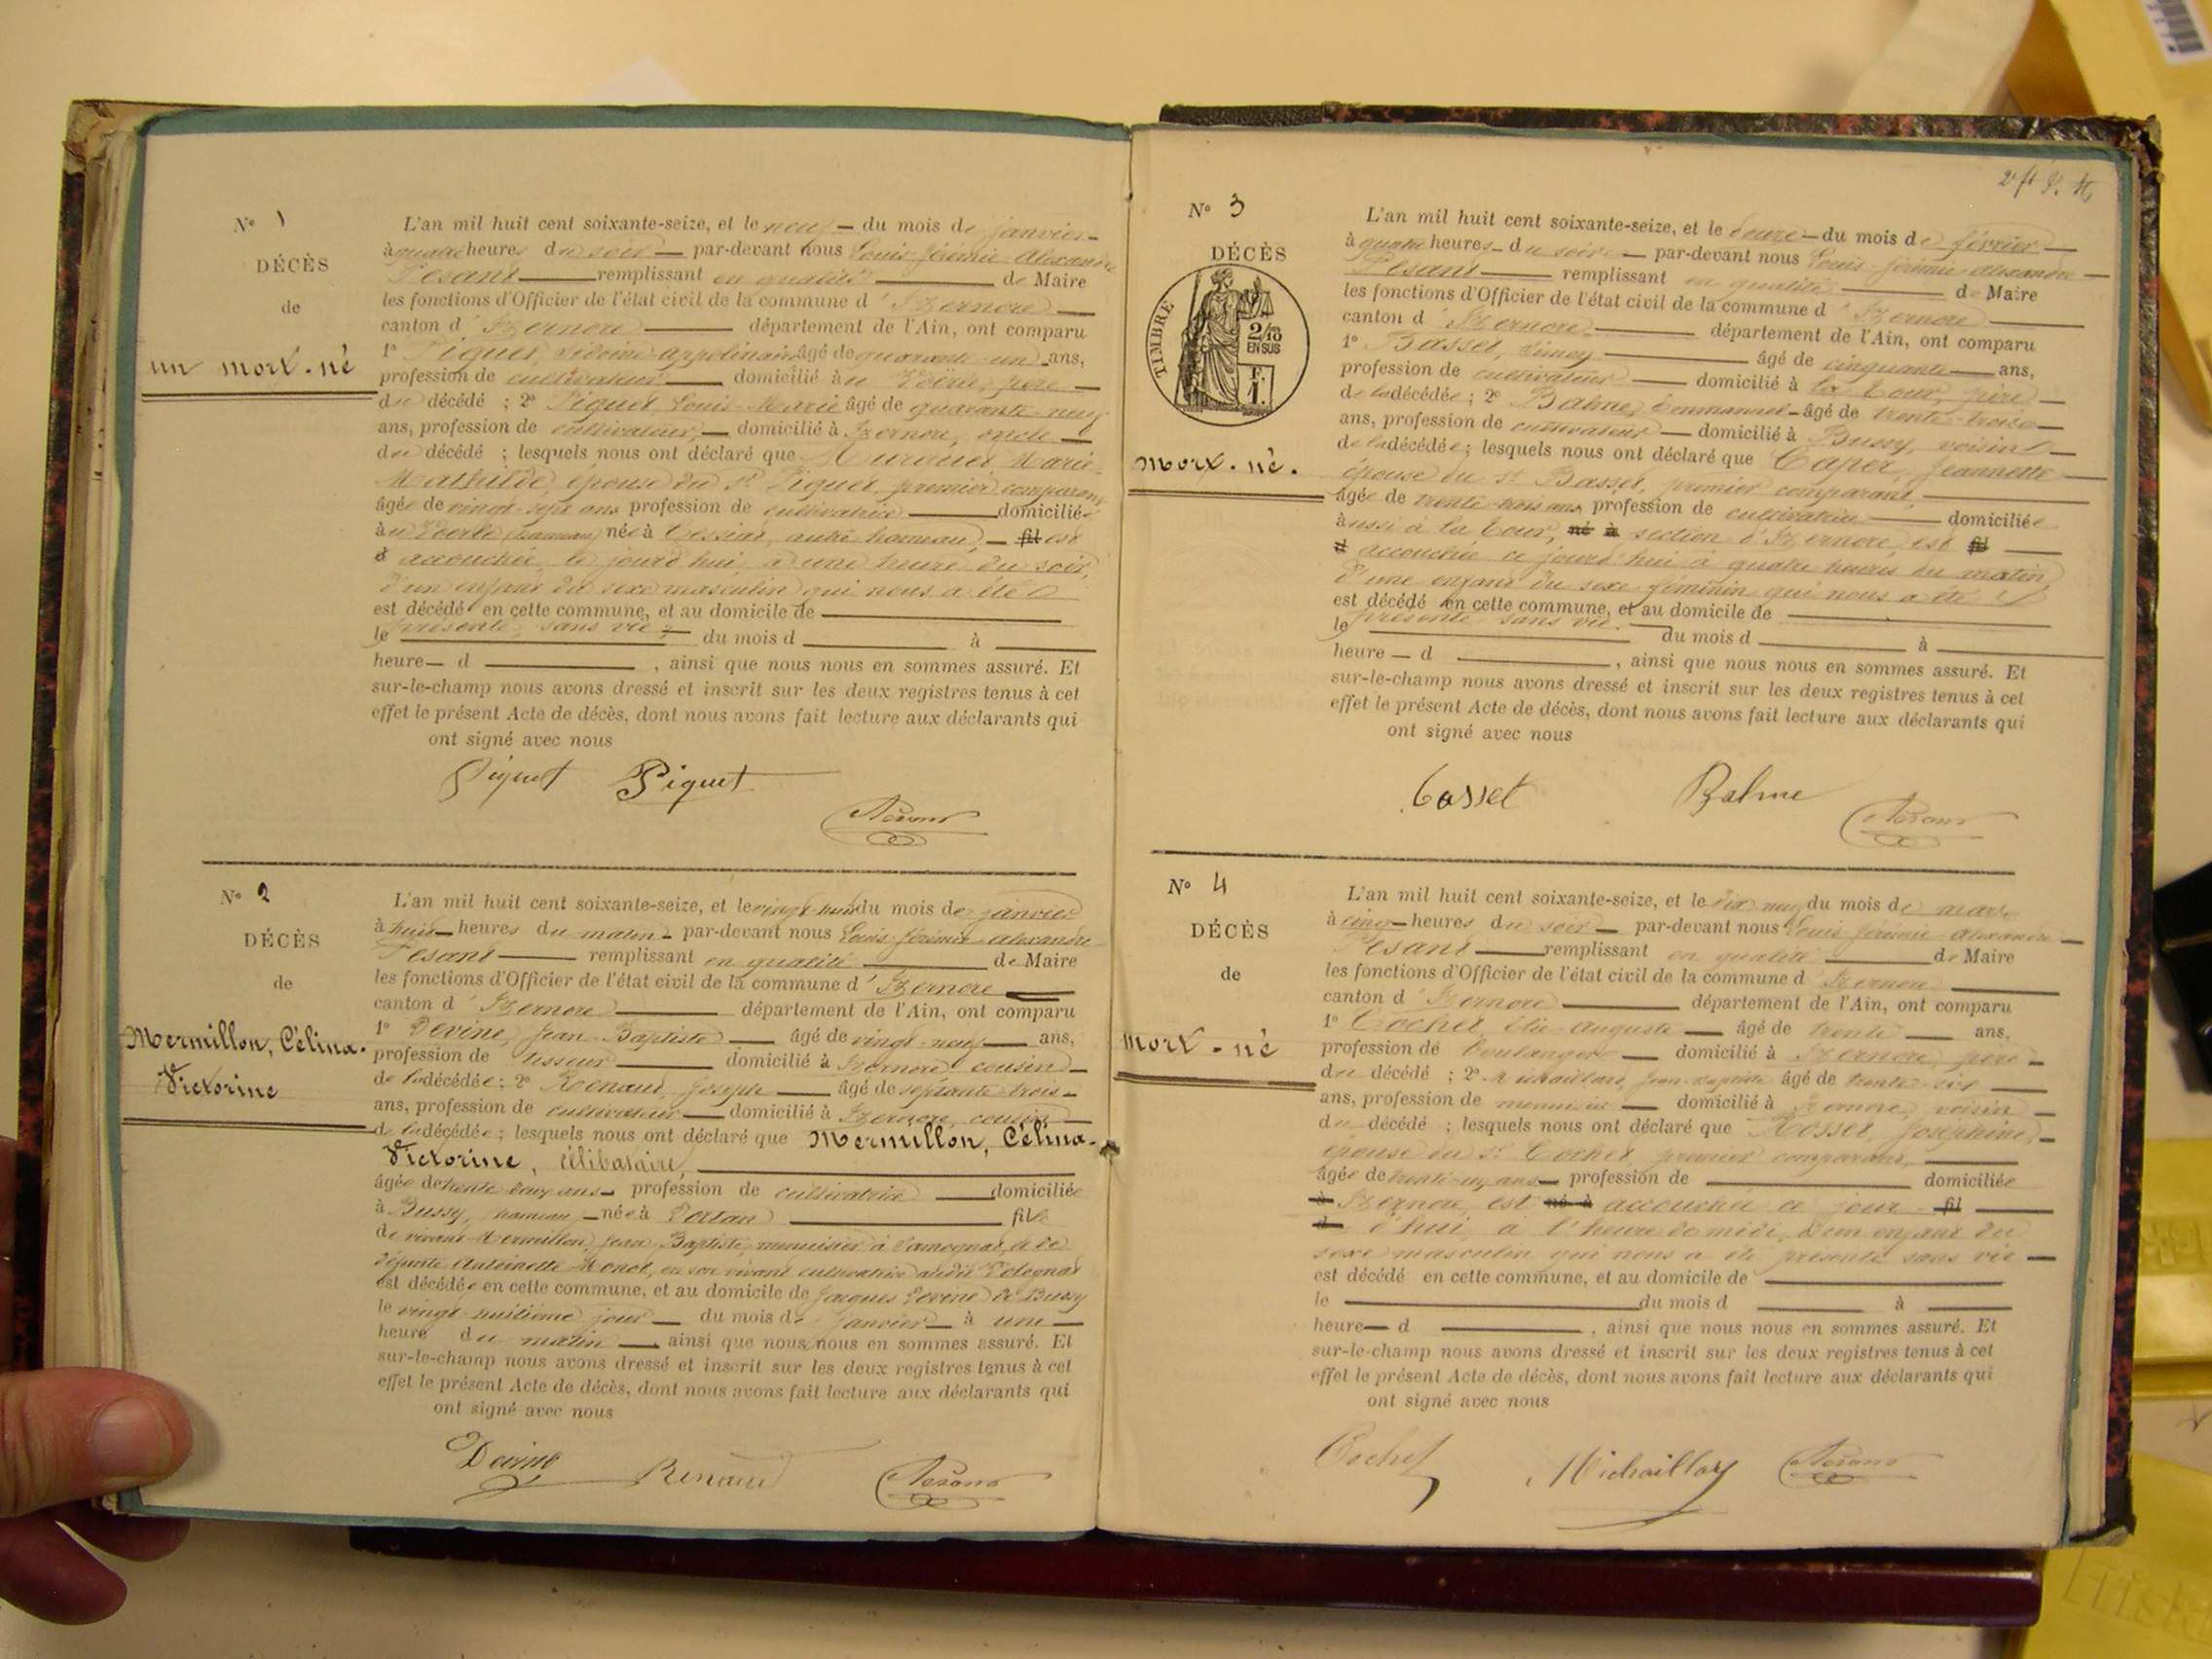 N° 1
DÉCÈS
de
un mort-né
L'an mil huit cent soixante-seize, et le neuf du mois de janvier
à quatre heures du soir par-devant nous Louis-Jérémie-Alexandre
remplissant en qualité de Maire
les fonctions d'Officier de l'état civil de la commune d'Izernore
canton d'Izernore département de l'Ain, ont comparu
1° Piguet âgé de quarante-un ans,
profession de cultivateur domicilié à père
du décédé ; 2° Piguet, Louis-Marie âgé de quarante-neuf
ans, profession de cultivateur, domicilié à Izernore, oncle
du décédé ; lesquels nous ont déclaré que Marie
Mathilde, épouse du Sr Piguet, premier comparant
âgée de vingt-sept ans profession de cultivatrice domiciliée
hameau, née à autre hameau, fil est
accouchée, ce jourd'hui, à une heure du soir,
d'un enfant du sexe masculin qui nous a été
est décédé en cette commune, et au domicile de
le présenté sans vie du mois d à
heure d , ainsi que nous nous en sommes assuré. Et
sur-le-champ nous avons dressé et inscrit sur les deux registres tenus à cet
effet le présent Acte de décès, dont nous avons fait lecture aux déclarants qui
ont signé avec nous
Piguet Piguet
N° 2
DÉCÈS
de
Mermillon, Célina-
Victorine
L'an mil huit cent soixante-seize, et le vingt-huit du mois de janvier
à huit heures du matin par-devant nous Louis-Jérémie-Alexandre
remplissant en qualité de Maire
les fonctions d'Officier de l'état civil de la commune d'Izernore
canton d'Izernore département de l'Ain, ont comparu
1° Devine, Jean-Baptiste âgé de vingt-neuf ans,
profession de tisseur domicilié à Izernore cousin
de la décédée ; 2° Renaud, Joseph âgé de septante-trois
ans, profession de cultivateur domicilié à Izernore, cousin
de la décédée ; lesquels nous ont déclaré que Mermillon, Célina-
Victorine, célibataire,
âgée de trente-deux ans profession de cultivatrice domiciliée
à Bussy, hameau, née à Dortan fille
de vivant Mermillon, Jean-Baptiste, menuisier à et de
défunte Antoinette en son vivant cultivatrice audit
est décédée en cette commune, et au domicile de Jacques Devine de Bussy
le vingt-huitième jour du mois de janvier à une
heure du matin ainsi que nous nous en sommes assuré. Et
sur-le-champ nous avons dressé et inscrit sur les deux registres tenus à cet
effet le présent Acte de décès, dont nous avons fait lecture aux déclarants qui
ont signé avec nous
Devine Renaud
N° 3
DÉCÈS
TIMBRE
2/10
EN SUS
F.
1.
mort-né.
L'an mil huit cent soixante-seize, et le douze du mois de février
à quatre heures du soir par-devant nous Louis-Jérémie-Alexandre
remplissant en qualité de Maire
les fonctions d'Officier de l'état civil de la commune d'Izernore
canton d'Izernore département de l'Ain, ont comparu
1° Basset, âgé de cinquante ans,
profession de cultivateur domicilié à la Tour, père
de la décédée ; 2° Balme, Emmanuel âgé de trente-trois
ans, profession de cultivateur domicilié à Bussy, voisin
de la décédée ; lesquels nous ont déclaré que Jeannette
épouse du Sr Basset, premier comparant,
âgée de trente-trois ans profession de cultivatrice domiciliée
aussi à la Tour, né à section d'Izernore, est fil
accouchée ce jourd'hui à quatre heures du matin,
d'une enfant du sexe féminin qui nous a été
est décédé en cette commune, et au domicile de
le présenté sans vie. du mois d à
heure d , ainsi que nous nous en sommes assuré. Et
sur-le-champ nous avons dressé et inscrit sur les deux registres tenus à cet
effet le présent Acte de décès, dont nous avons fait lecture aux déclarants qui
ont signé avec nous
Basset Balme
N° 4
DÉCÈS
de
mort-né
L'an mil huit cent soixante-seize, et le dix-neuf du mois de mars
à cinq heures du soir par-devant nous Louis-Jérémie-Alexandre
remplissant en qualité de Maire
les fonctions d'Officier de l'état civil de la commune d'Izernore
canton d'Izernore département de l'Ain, ont comparu
1° Cochet, Elie-Auguste âgé de trente ans,
profession de boulanger domicilié à Izernore, père
du décédé ; 2° Michaillard, Jean-Baptiste âgé de trente-six
ans, profession de menuisier domicilié à Izernore, voisin
du décédé ; lesquels nous ont déclaré que Rosset, Joséphine,
épouse du Sr Cochet, premier comparant,
âgée de trente-un ans profession de domiciliée
à Izernore est né à accouchée ce jour- fil
d'hui, à l'heure de midi, d'un enfant du
sexe masculin qui nous a été présenté sans vie
est décédé en cette commune, et au domicile de
le du mois d à
heure d , ainsi que nous nous en sommes assuré. Et
sur-le-champ nous avons dressé et inscrit sur les deux registres tenus à cet
effet le présent Acte de décès, dont nous avons fait lecture aux déclarants qui
ont signé avec nous
Cochet Michaillard